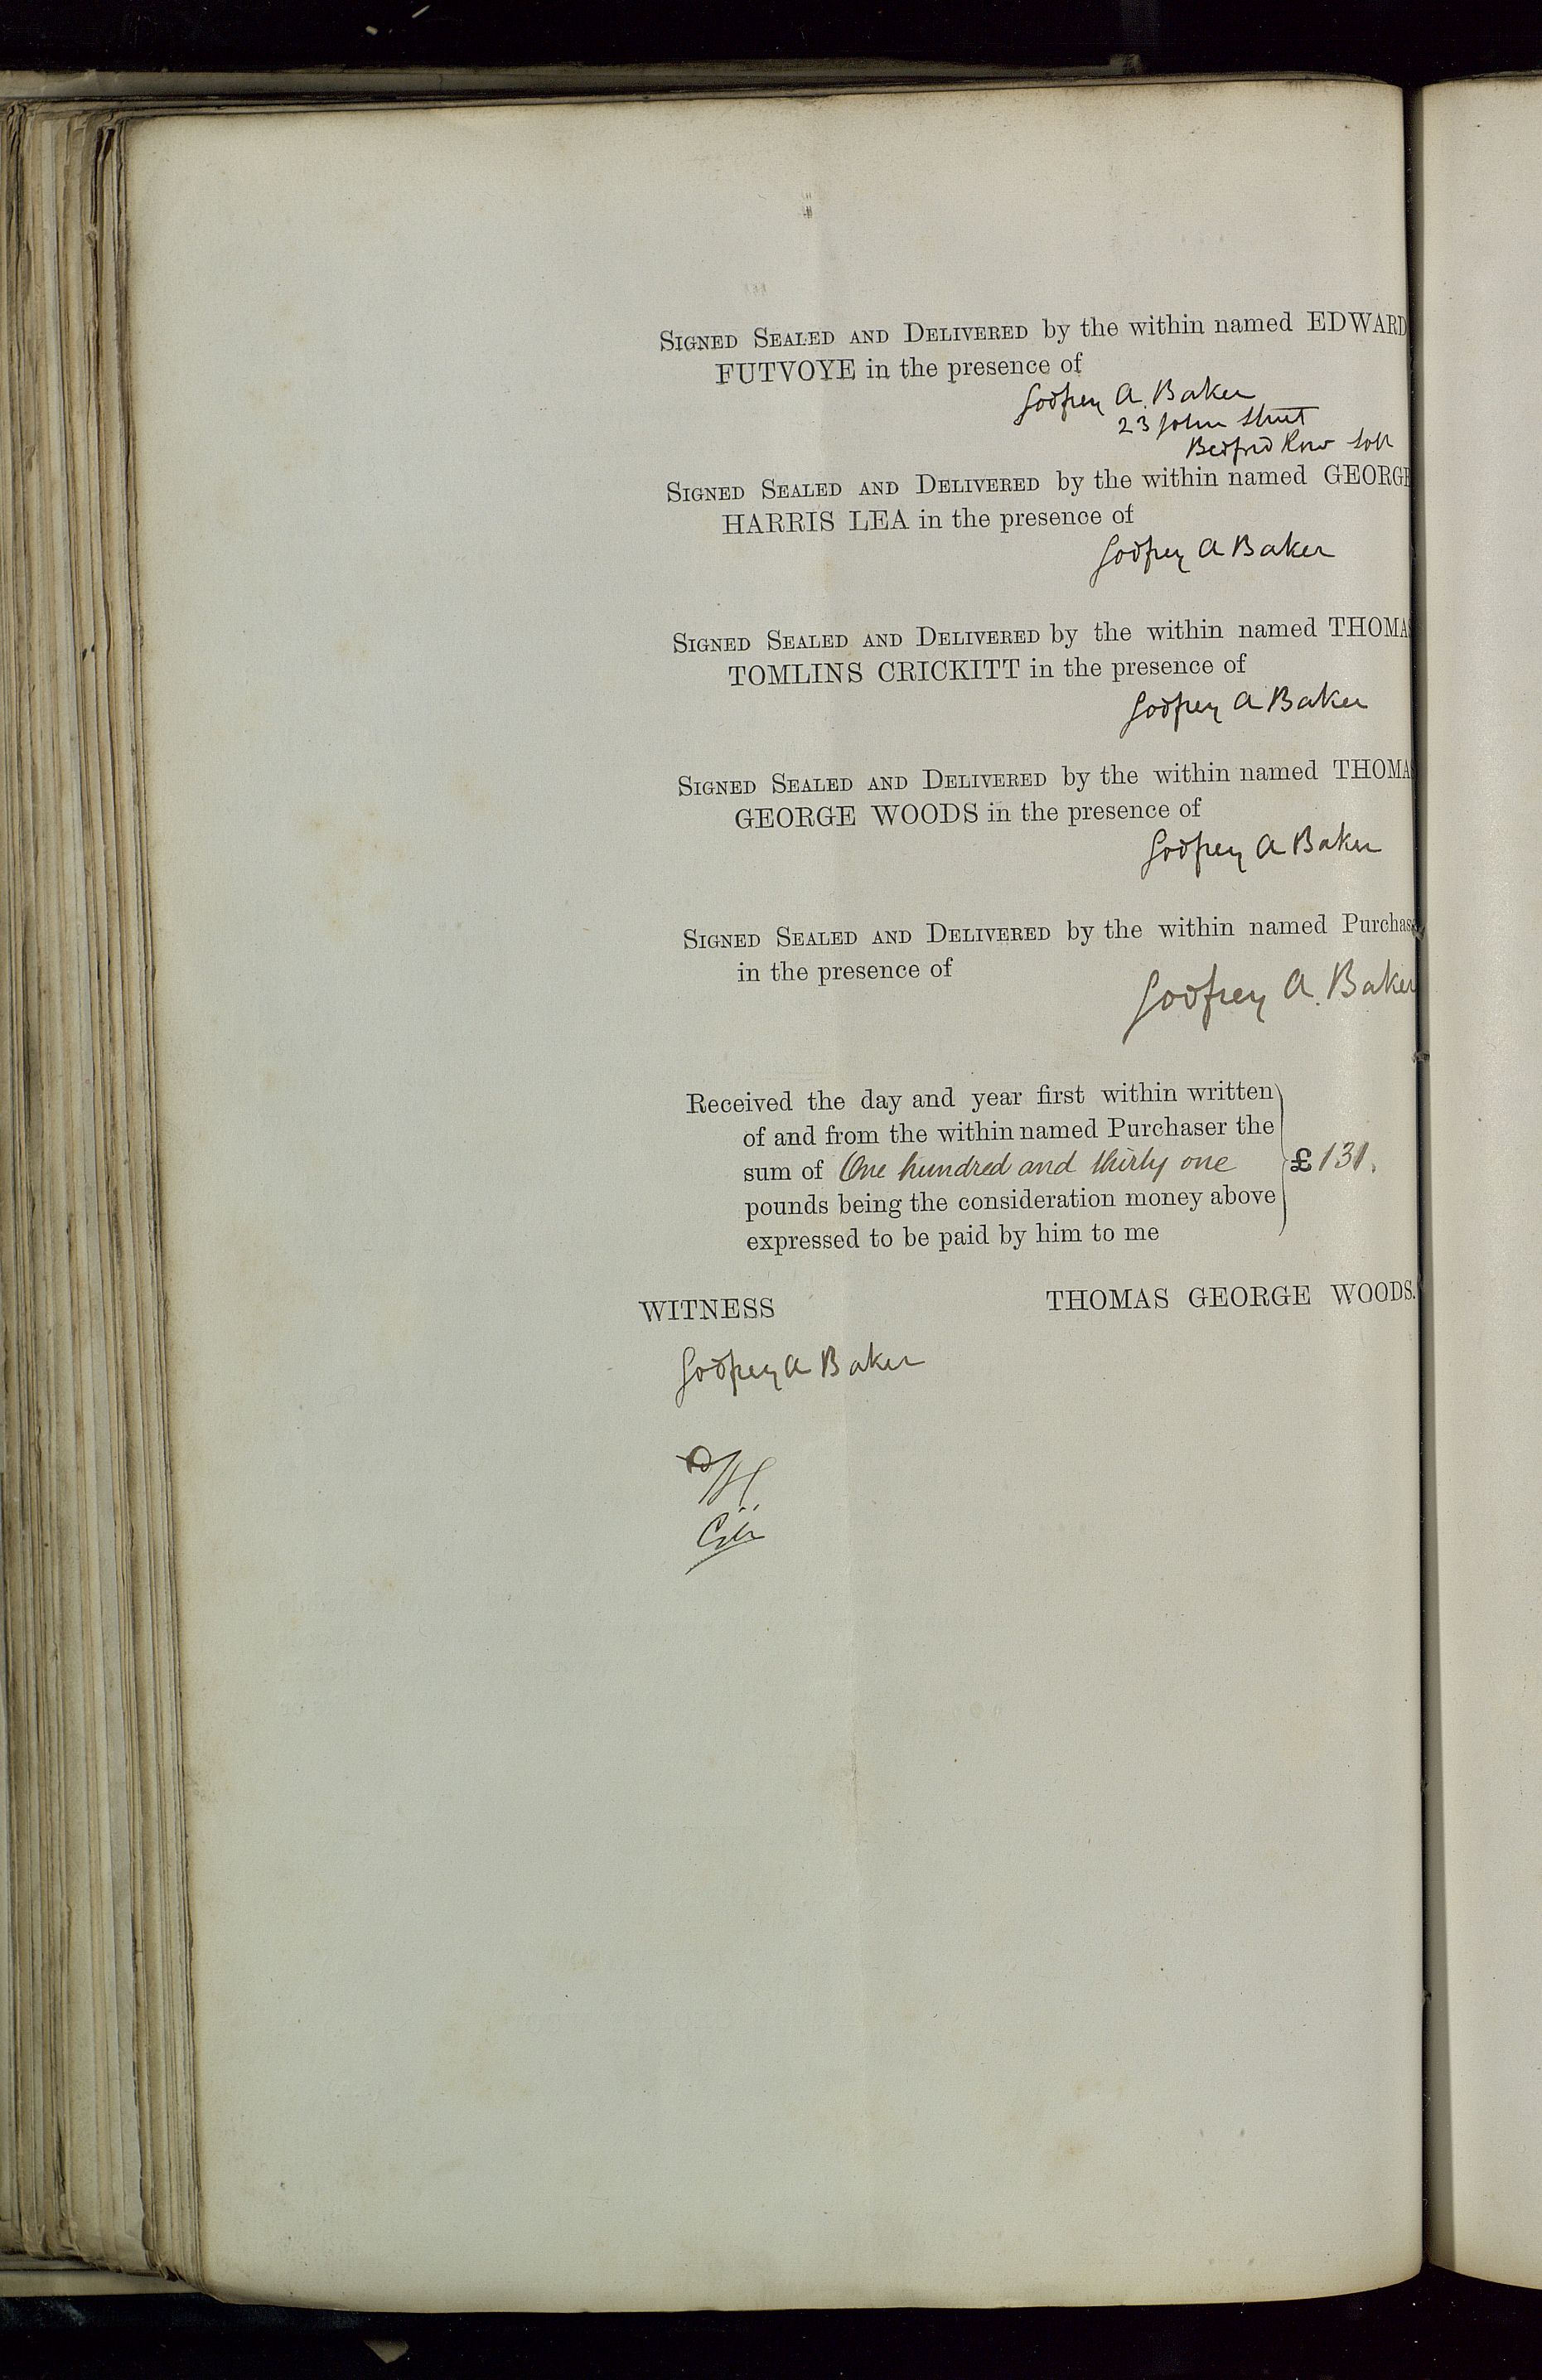 SIGNED SEALED AND DELIVERED by the within named EDWARD
FUTVOYE in the presence of
Godfrey A. Baker
23 John Street
Bedford Row Solr
SIGNED SEALED AND DELIVERED by the within named GEORGE
HARRIS LEA in the presence of
Godfrey A Baker
SIGNED SEALED AND DELIVERED by the within named THOMA
TOMLINS CRICKITT in the presence of
Godfrey A Baker
SIGNED SEALED AND DELIVERED by the within named THOMA
GEORGE WOODS in the presence of
Godfrey A Baker
SIGNED SEALED AND DELIVERED by the within named Purchase
in the presence of
Godfrey A. Baker
Received the day and year first within written
of and from the within named Purchaser the
sum of One hundred and thirty one £131.
pounds being the consideration money above
expressed to be paid by him to me
WITNESS THOMAS GEORGE WOODS.
Godfrey A Baker